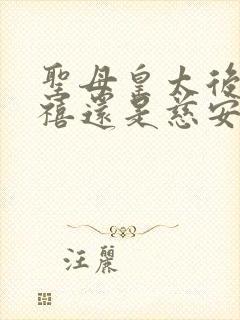 聖母皇太後
禧還是慈安
汪麗